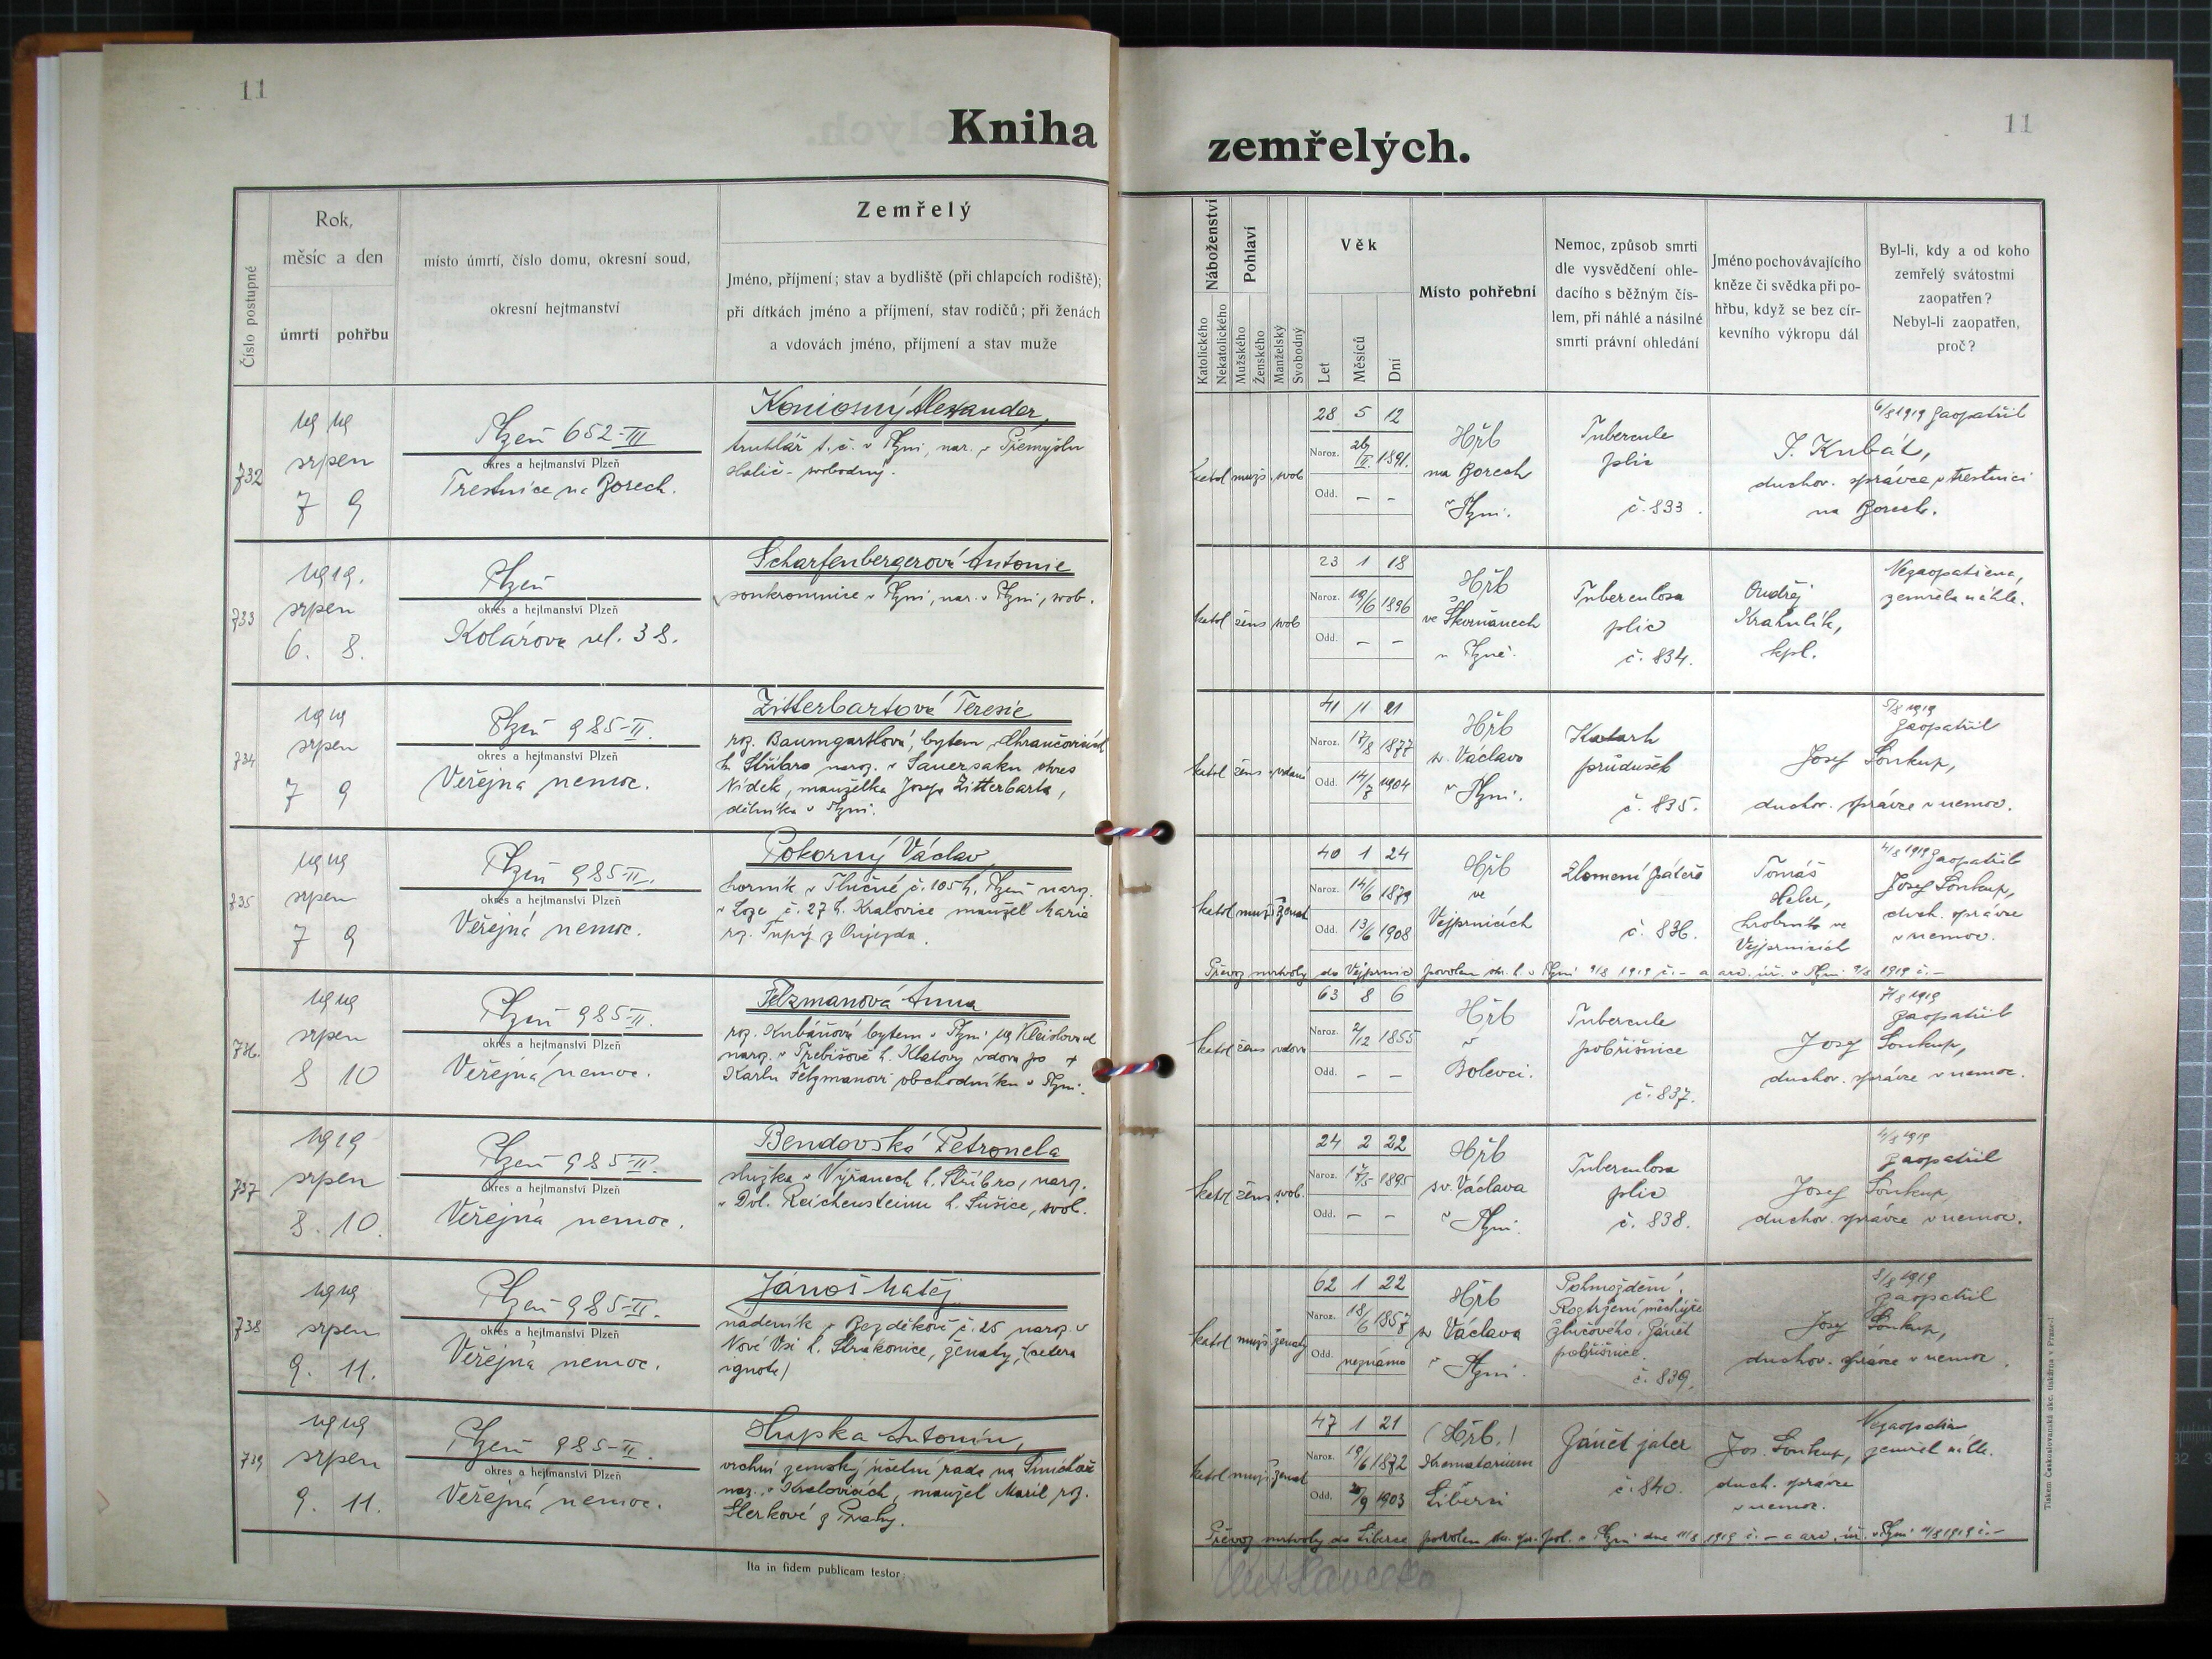 11
11
Kniha
zemřelých.
Číslo postupné
Rok,
měsíc a den
úmrtí
pohřbu
místo úmrtí, číslo domu, okresní soud,
okresní hejtmanství
Zemřelý
Jméno, příjmení; stav a bydliště (při chlapcích rodiště);
při dítkách jméno a příjmení, stav rodičů; při ženách
a vdovách jméno, příjmení a stav muže
Náboženství
Katolického
Nekatolického
Pohlaví
Mužského
Ženského
Manželský
Svobodný
Věk
Let
Měsíců
Dní
Místo pohřební
Nemoc, způsob smrti
dle vysvědčení ohle-
dacího s běžným čís-
lem, při náhlé a násilné
smrti právní ohledání
Jméno pochovávajícího
kněze či svědka při po-
hřbu, když se bez cír-
kevního výkropu dál
Byl-li, kdy a od koho
zemřelý svátostmi
zaopatřen?
Nebyl-li zaopatřen,
proč?
732
1919
srpen
7 9
Plzeň 652-III
okres a hejtmanství Plzeň
Trestnice na Borech.
Alexander,
truhlář t. č. v Plzni, nar. v Přemyšlu
Halič - svobodný.
katol mužs. svob
28 5 12
Naroz. 26/II. 1891.
Odd. – –
Hřb
na Borech
v Plzni.
Tubercule
plic
č. 833.
6/8 1919 zaopatřil
J. Kubát,
duchov. správce v trestnici
na Borech.
733
1919.
srpen
6. 8.
Plzeň
okres a hejtmanství Plzeň
Kolárova ul. 38.
Scharfenbergerová Antonie
soukromnice v Plzni, nar. v Plzni, svob.
katol žens svob
23 1 18
Naroz. 19/6 1896
Odd. – –
Hřb
ve Škvrňanech
u Plzně.
Tuberculosa
plic
č. 834.
Ondřej
Krahulík,
kpl.
Nezaopatřena,
zemřela náhle.
734
1919
srpen
7 9
Plzeň 985-II.
okres a hejtmanství Plzeň
Veřejná nemoc.
Zitterbartová Teresie
roz. Baumgartlová, bytem
h. Stříbro naroz. v Sauersaku okres
Nýdek, manželka Josefa Zitterbarta,
dělníka v Plzni.
katol žens vdaná
41 11 21
Naroz. 17/8 1877
Odd. 14/7 1904
Hřb
sv. Václava
v Plzni.
Katarh
průdušek
č. 835.
5/8 1919
zaopatřil
Josef Soukup,
duchov. správce v nemoc.
735
1919
srpen
7 9
Plzeň 985-II.
okres a hejtmanství Plzeň
Veřejná nemoc.
Pokorný Václav
horník v Tlučné č. 105 h. Plzeň naroz.
v Loze č. 27 h. Kralovice manžel Marie
roz. Tupý z Oujezda.
katol muž. ženat
40 1 24
Naroz. 14/6 1879
Odd. 13/6 1908
Hřb
ve
Vejprnicích
Zlomení páteře
č. 836.
Tomáš
Heler,
hrobník ve
Vejprnicích
4/8 1919 zaopatřil
Josef Soukup,
duch. správce
v nemoc.
Převoz mrtvoly do Vejprnic povolen v Plzni 9/8 1919 č. – a v Plzni 9/8 1919 č. –
736.
1919
srpen
8 10
Plzeň 985-II.
okres a hejtmanství Plzeň
Veřejná nemoc.
Felzmanová Anna
roz. Kubáňová bytem v Plzni
naroz. v Třebišově h. Klatovy vdova po +
Karlu Felzmanovi obchodníku v Plzni.
katol žens vdova
63 8 6
Naroz. 2/12 1855
Odd. – –
Hřb
v
Bolevci.
Tubercule
pobřišnice
č. 837.
7/8 1919
zaopatřil
Josef Soukup,
duchov. správce v nemoc.
737
1919
srpen
8. 10.
Plzeň 985-II.
okres a hejtmanství Plzeň
Veřejná nemoc.
Bendovská Petronela
služka v Výřanech h. Stříbro, naroz.
v Dol. Reichensteinu h. Sušice, svob.
katol žens svob.
24 2 22
Naroz. 17/5 1895
Odd. – –
Hřb
sv. Václava
v Plzni.
Tuberculosa
plic
č. 838.
4/8 1919
zaopatřil
Josef Soukup,
duchov. správce v nemoc.
738
1919
srpen
9. 11.
Plzeň 985-II.
okres a hejtmanství Plzeň
Veřejná nemoc.
Jánoš Matěj
nádeník v Bezděkově č. 25 naroz. v
Nové Vsi h. Strakonice, ženatý, (cetera
ignota)
katol muž. ženatý
62 1 22
Naroz. 18/6 1857
Odd. neznámo
Hřb
sv Václava
v Plzni.
Pohmoždění,
Roztržení měchýře
žlučového, Zánět
pobřišnice
č. 839.
8/8 1919
zaopatřil
Josef Soukup,
duchov. správce v nemoc.
739
1919
srpen
9. 11.
Plzeň 985-II.
okres a hejtmanství Plzeň
Veřejná nemoc.
Hupka Antonín,
vrchní zemský účetní rada na Smíchově
nar. v Kralovicích, manžel Marie roz.
Sterkové z Prahy.
katol muž. ženat
47 1 21
Naroz. 19/6 1872
Odd. /9 1903
(Hřb.)
Krematorium
Liberci
Zánět jater
č. 840.
Jos. Soukup,
duch. správce
v nemoc.
zemřel náhle.
Převoz mrtvoly do Liberce povolen v Plzni dne 11/8 1919 č. – a v Plzni 11/8 1919 č. –
Ita in fidem publicam testor:
Tiskem Českoslovanská akc. tiskárna v Praze-I